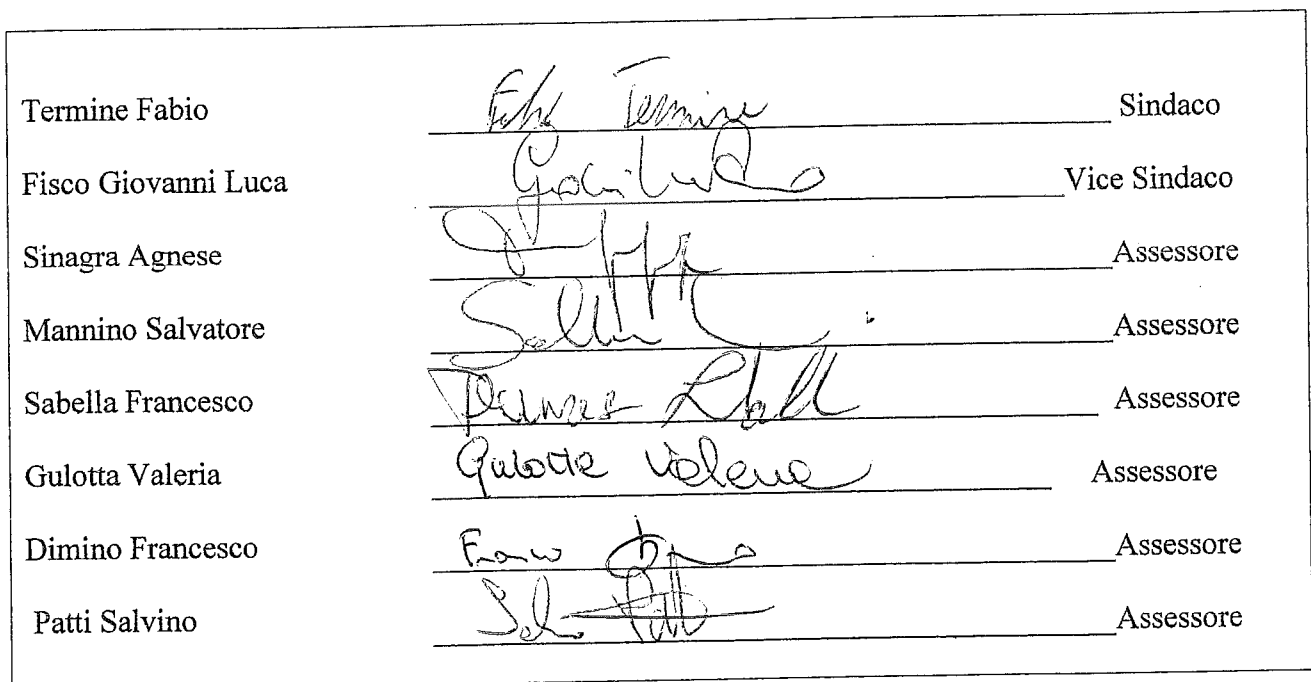 Termine Fabio Fabio Termine Sindaco
Fisco Giovanni Luca Vice Sindaco
Sinagra Agnese Assessore
Mannino Salvatore Assessore
Sabella Francesco Assessore
Gulotta Valeria Gulotta Valeria Assessore
Dimino Francesco Franco Assessore
Patti Salvino Assessore